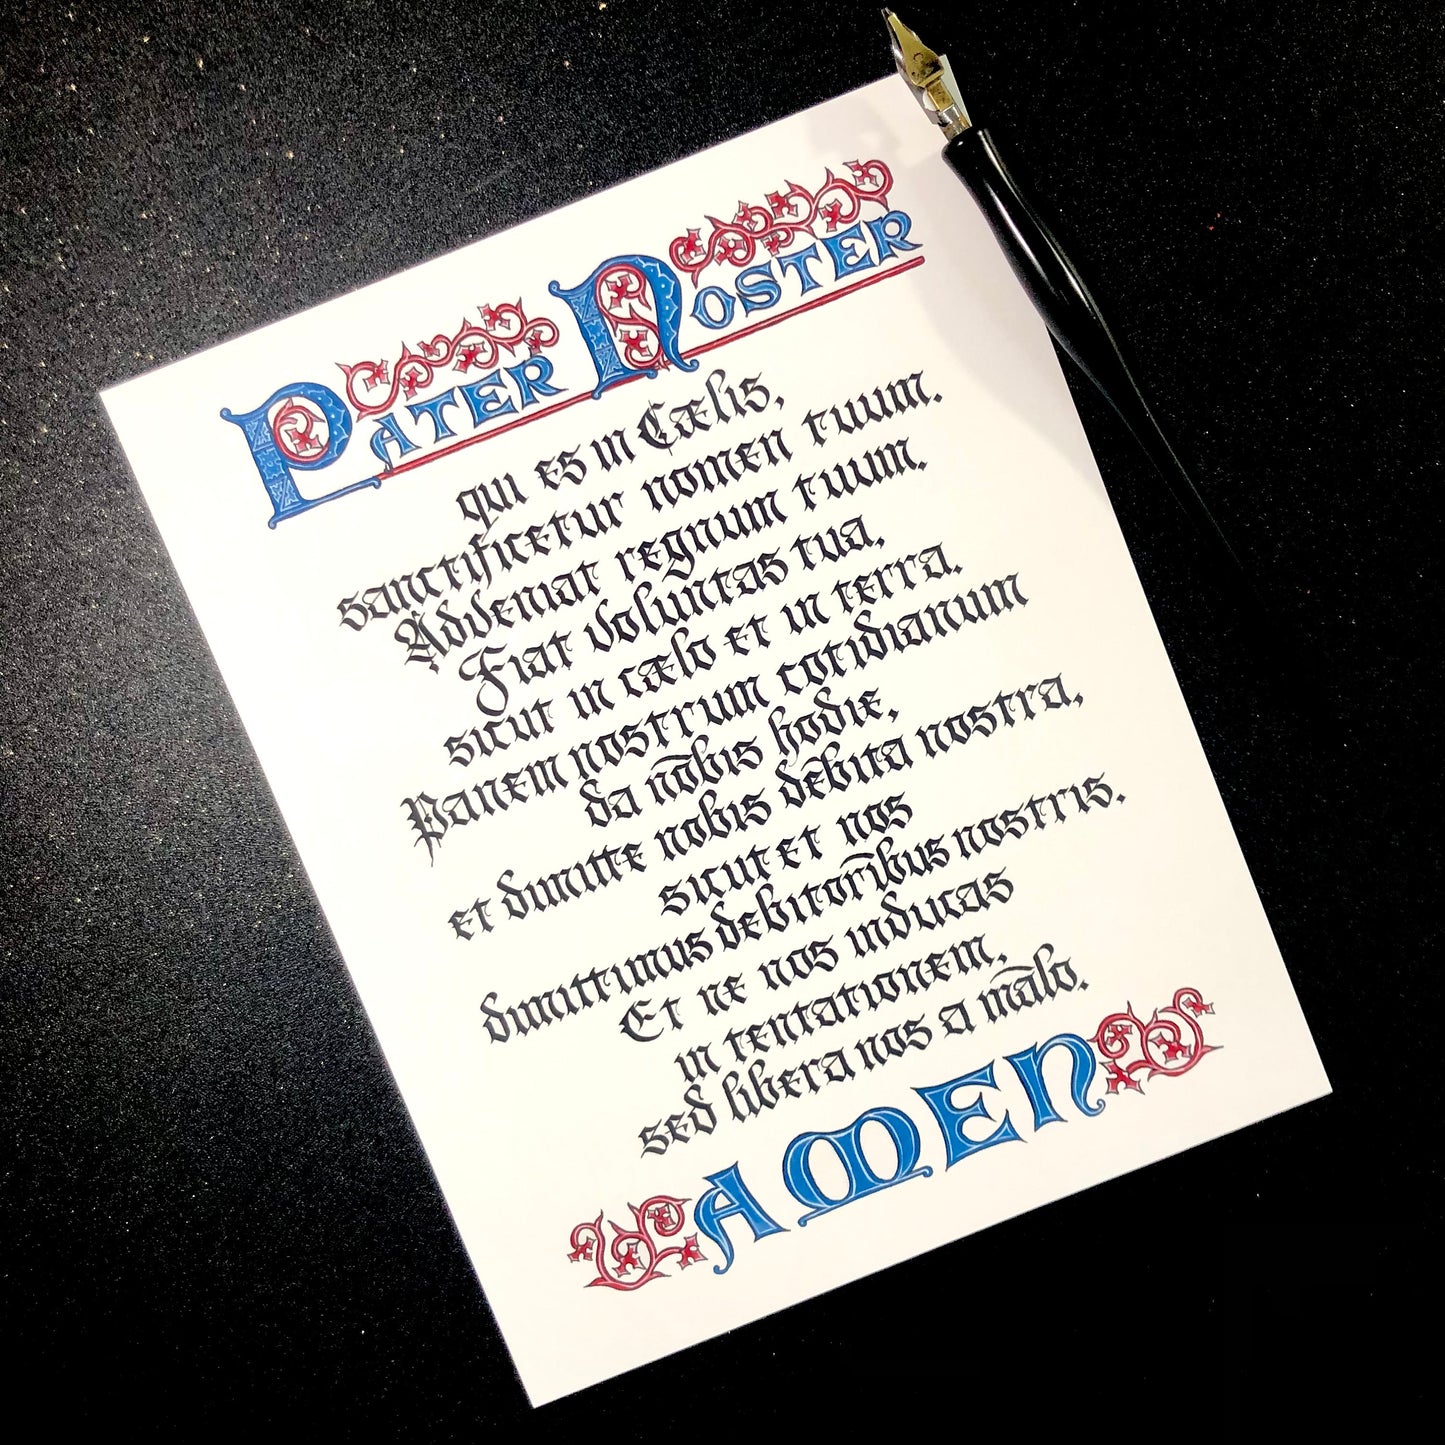 PATER NOSTER
qui es in Cælis,
sanctificetur nomen tuum.
Adveniat regnum tuum.
Fiat voluntas tua,
sicut in cælo et in terra.
Panem nostrum cotidianum
da nōbis hodie,
et dimitte nobis dēbita nostra,
sicut et nos
dimittimus debitorībus nostris.
Et ne nos inducas
in tentationem,
sed libera nos a mālo.
AMEN